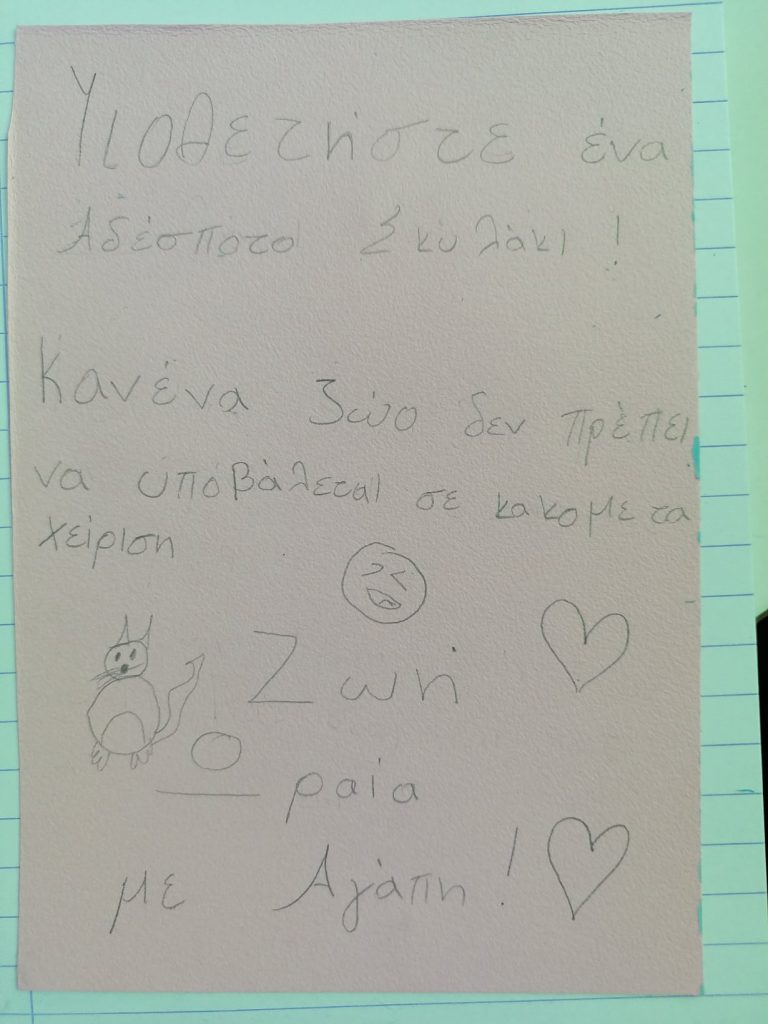 Υιοθετήστε ένα
Αδέσποτο Σκυλάκι!
Κανένα ζώο δεν πρέπει
να υποβάλεται σε κακομετα
χείριση
Ζωή
Ωραία
με Αγάπη!